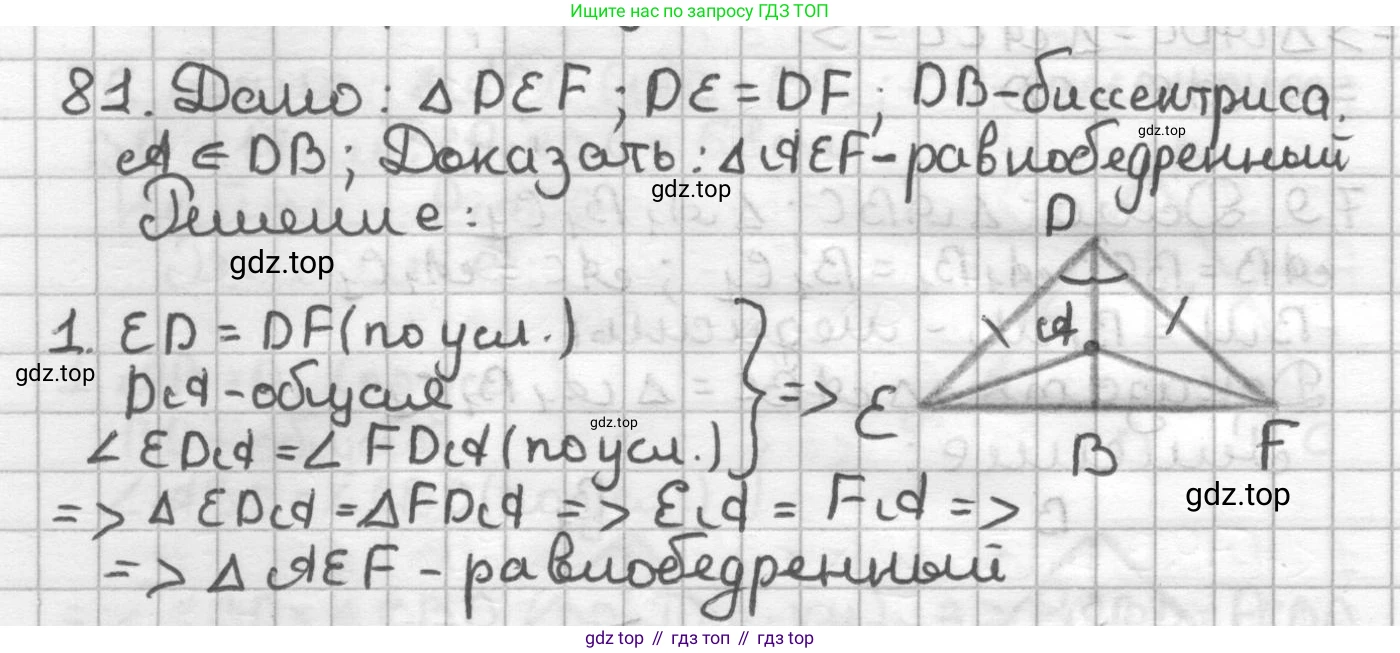 Ищите нас по запросу ГДЗ ТОП
81. Дано: △DEF; DE=DF; DB-биссектриса.
A∈DB; Доказать: △AEF-равнобедренный
gdz.top
gdz.top
Решение:
D
gdz.top
1. ED = DF (по усл.)
A
gdz.top
DA-общая
=> E
gdz.top
∠EDA = ∠FDA (по усл.)
B
F
gdz.top
=> △EDA = △FDA => EA = FA =>
=> △AEF - равнобедренный
gdz top // гдз топ // гдз top